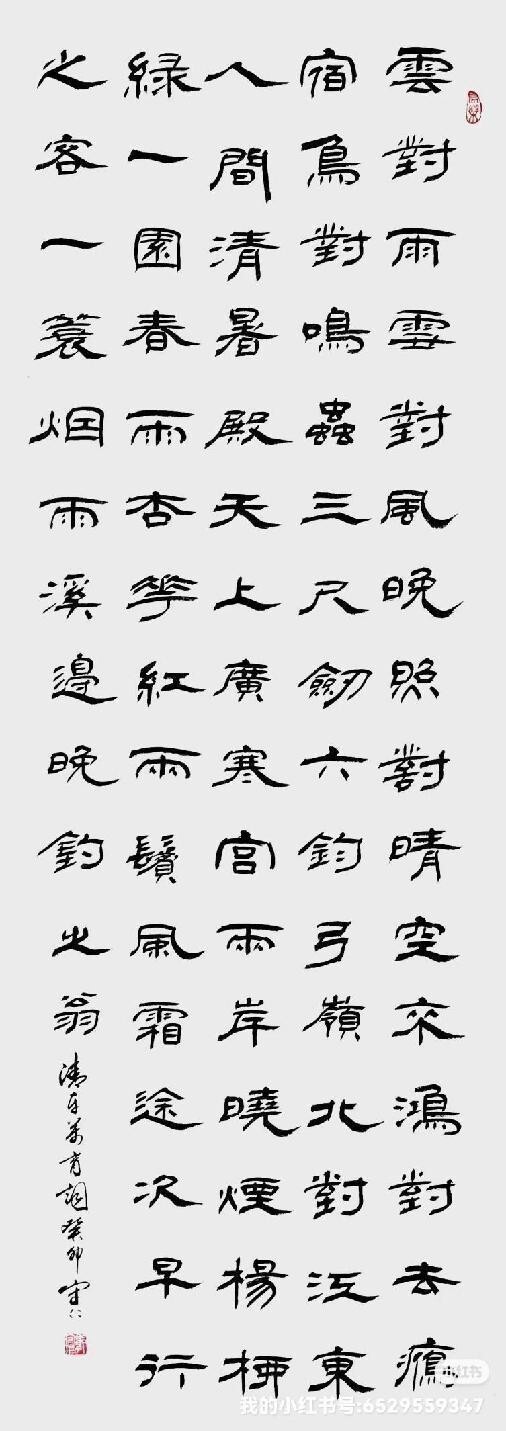 雲對雨雪對風晚照對晴空來鴻對去
宿鳥對鳴蟲三尺劍六鈞弓嶺北對江東
人間清暑殿天上廣寒宮兩岸曉煙楊柳
綠一園春雨杏花紅兩鬢風霜途次早行
之客一蓑烟雨溪邊晚釣之翁
清車萬育詞癸卯
小红书
我的小红书号:6529559347